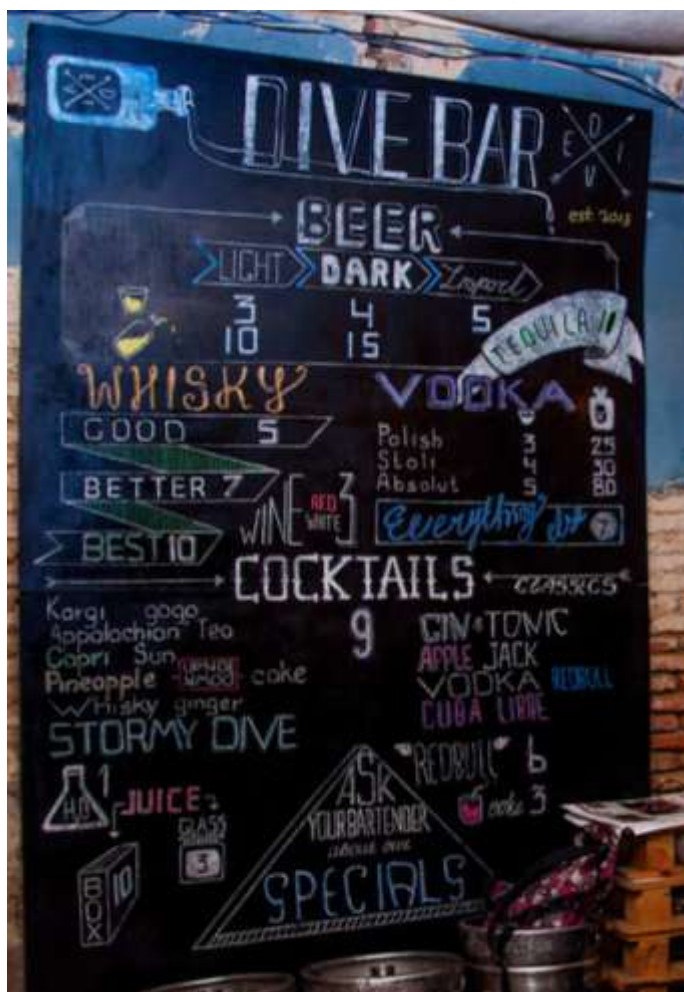 DIVE BAR
E D I V
est 2013
BEER
LIGHT DARK Import
3 4 5
10 15
TEQUILA 11
WHISKY
GOOD 5
BETTER 7
BEST 10
WINE RED WHITE 3
VODKA
Polish 3 25
Stoli 4 30
Absolut 5 80
Everything 7
COCKTAILS
CLASSICS
9
Kargi gogo
Appalochian Tea
Capri Sun
Pineapple UPSIDE DOWN cake
WHisky ginger
STORMY DIVE
GIN & TONIC
APPLE JACK
VODKA REDBULL
CUBA LIBRE
"REDBULL" 6
coke 3
H2O 1
JUICE
GLASS
3
BOX 10
ASK
YOUR BARTENDER
about our
SPECIALS